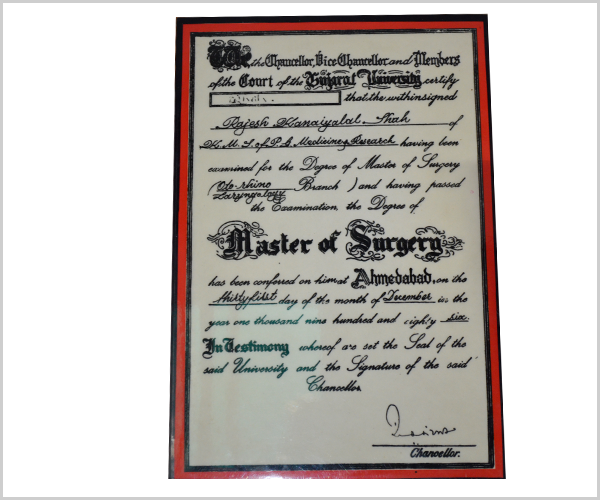 We, the Chancellor, Vice Chancellor and Members
of the Court of the Gujarat University certify
that the withinsigned
Rajesh Kanaiyalal Shah of
K. M. S. of P. G. Medicine & Research having been
examined for the Degree of Master of Surgery
(Oto-rhino Branch) and having passed
Laryngology
the Examination, the Degree of
Master of Surgery
has been conferred on him at Ahmedabad, on the
thirtyfirst day of the month of December in the
year one thousand nine hundred and eighty six.
In Testimony whereof are set the Seal of the
said University and the Signature of the said
Chancellor.
Chancellor.